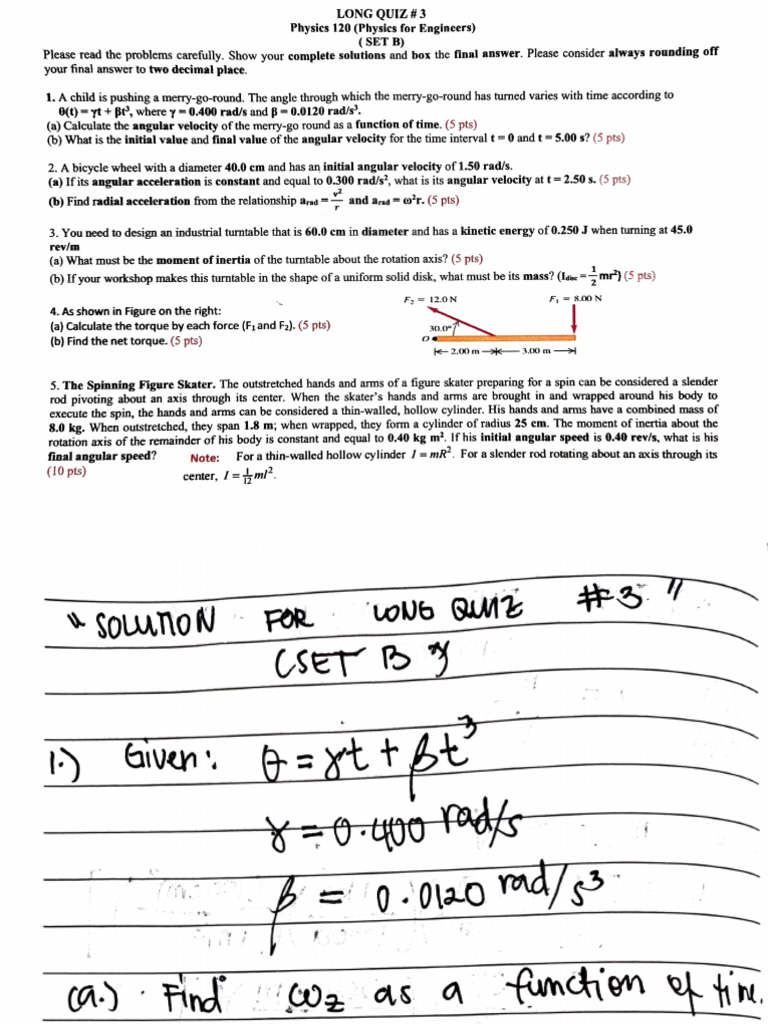 LONG QUIZ # 3
Physics 120 (Physics for Engineers)
( SET B)
Please read the problems carefully. Show your complete solutions and box the final answer. Please consider always rounding off
your final answer to two decimal place.
1. A child is pushing a merry-go-round. The angle through which the merry-go-round has turned varies with time according to
θ(t) = γt + βt³, where γ = 0.400 rad/s and β = 0.0120 rad/s³.
(a) Calculate the angular velocity of the merry-go round as a function of time. (5 pts)
(b) What is the initial value and final value of the angular velocity for the time interval t = 0 and t = 5.00 s? (5 pts)
2. A bicycle wheel with a diameter 40.0 cm and has an initial angular velocity of 1.50 rad/s.
(a) If its angular acceleration is constant and equal to 0.300 rad/s², what is its angular velocity at t = 2.50 s. (5 pts)
(b) Find radial acceleration from the relationship a_rad = v²/r and a_rad = ω²r. (5 pts)
3. You need to design an industrial turntable that is 60.0 cm in diameter and has a kinetic energy of 0.250 J when turning at 45.0
rev/m
(a) What must be the moment of inertia of the turntable about the rotation axis? (5 pts)
(b) If your workshop makes this turntable in the shape of a uniform solid disk, what must be its mass? (I_disc = 1/2 mr²) (5 pts)
4. As shown in Figure on the right:
(a) Calculate the torque by each force (F₁ and F₂). (5 pts)
(b) Find the net torque. (5 pts)
F₂ = 12.0 N
F₁ = 8.00 N
30.0°
O
2.00 m
3.00 m
5. The Spinning Figure Skater. The outstretched hands and arms of a figure skater preparing for a spin can be considered a slender
rod pivoting about an axis through its center. When the skater's hands and arms are brought in and wrapped around his body to
execute the spin, the hands and arms can be considered a thin-walled, hollow cylinder. His hands and arms have a combined mass of
8.0 kg. When outstretched, they span 1.8 m; when wrapped, they form a cylinder of radius 25 cm. The moment of inertia about the
rotation axis of the remainder of his body is constant and equal to 0.40 kg m². If his initial angular speed is 0.40 rev/s, what is his
final angular speed? Note: For a thin-walled hollow cylinder I = mR². For a slender rod rotating about an axis through its
(10 pts) center, I = 1/12 ml².
"SOLUTION FOR LONG QUIZ #3"
(SET B)
1.) Given: θ = γt + βt³
γ = 0.400 rad/s
β = 0.0120 rad/s³
(a.) Find ωz as a function of time.